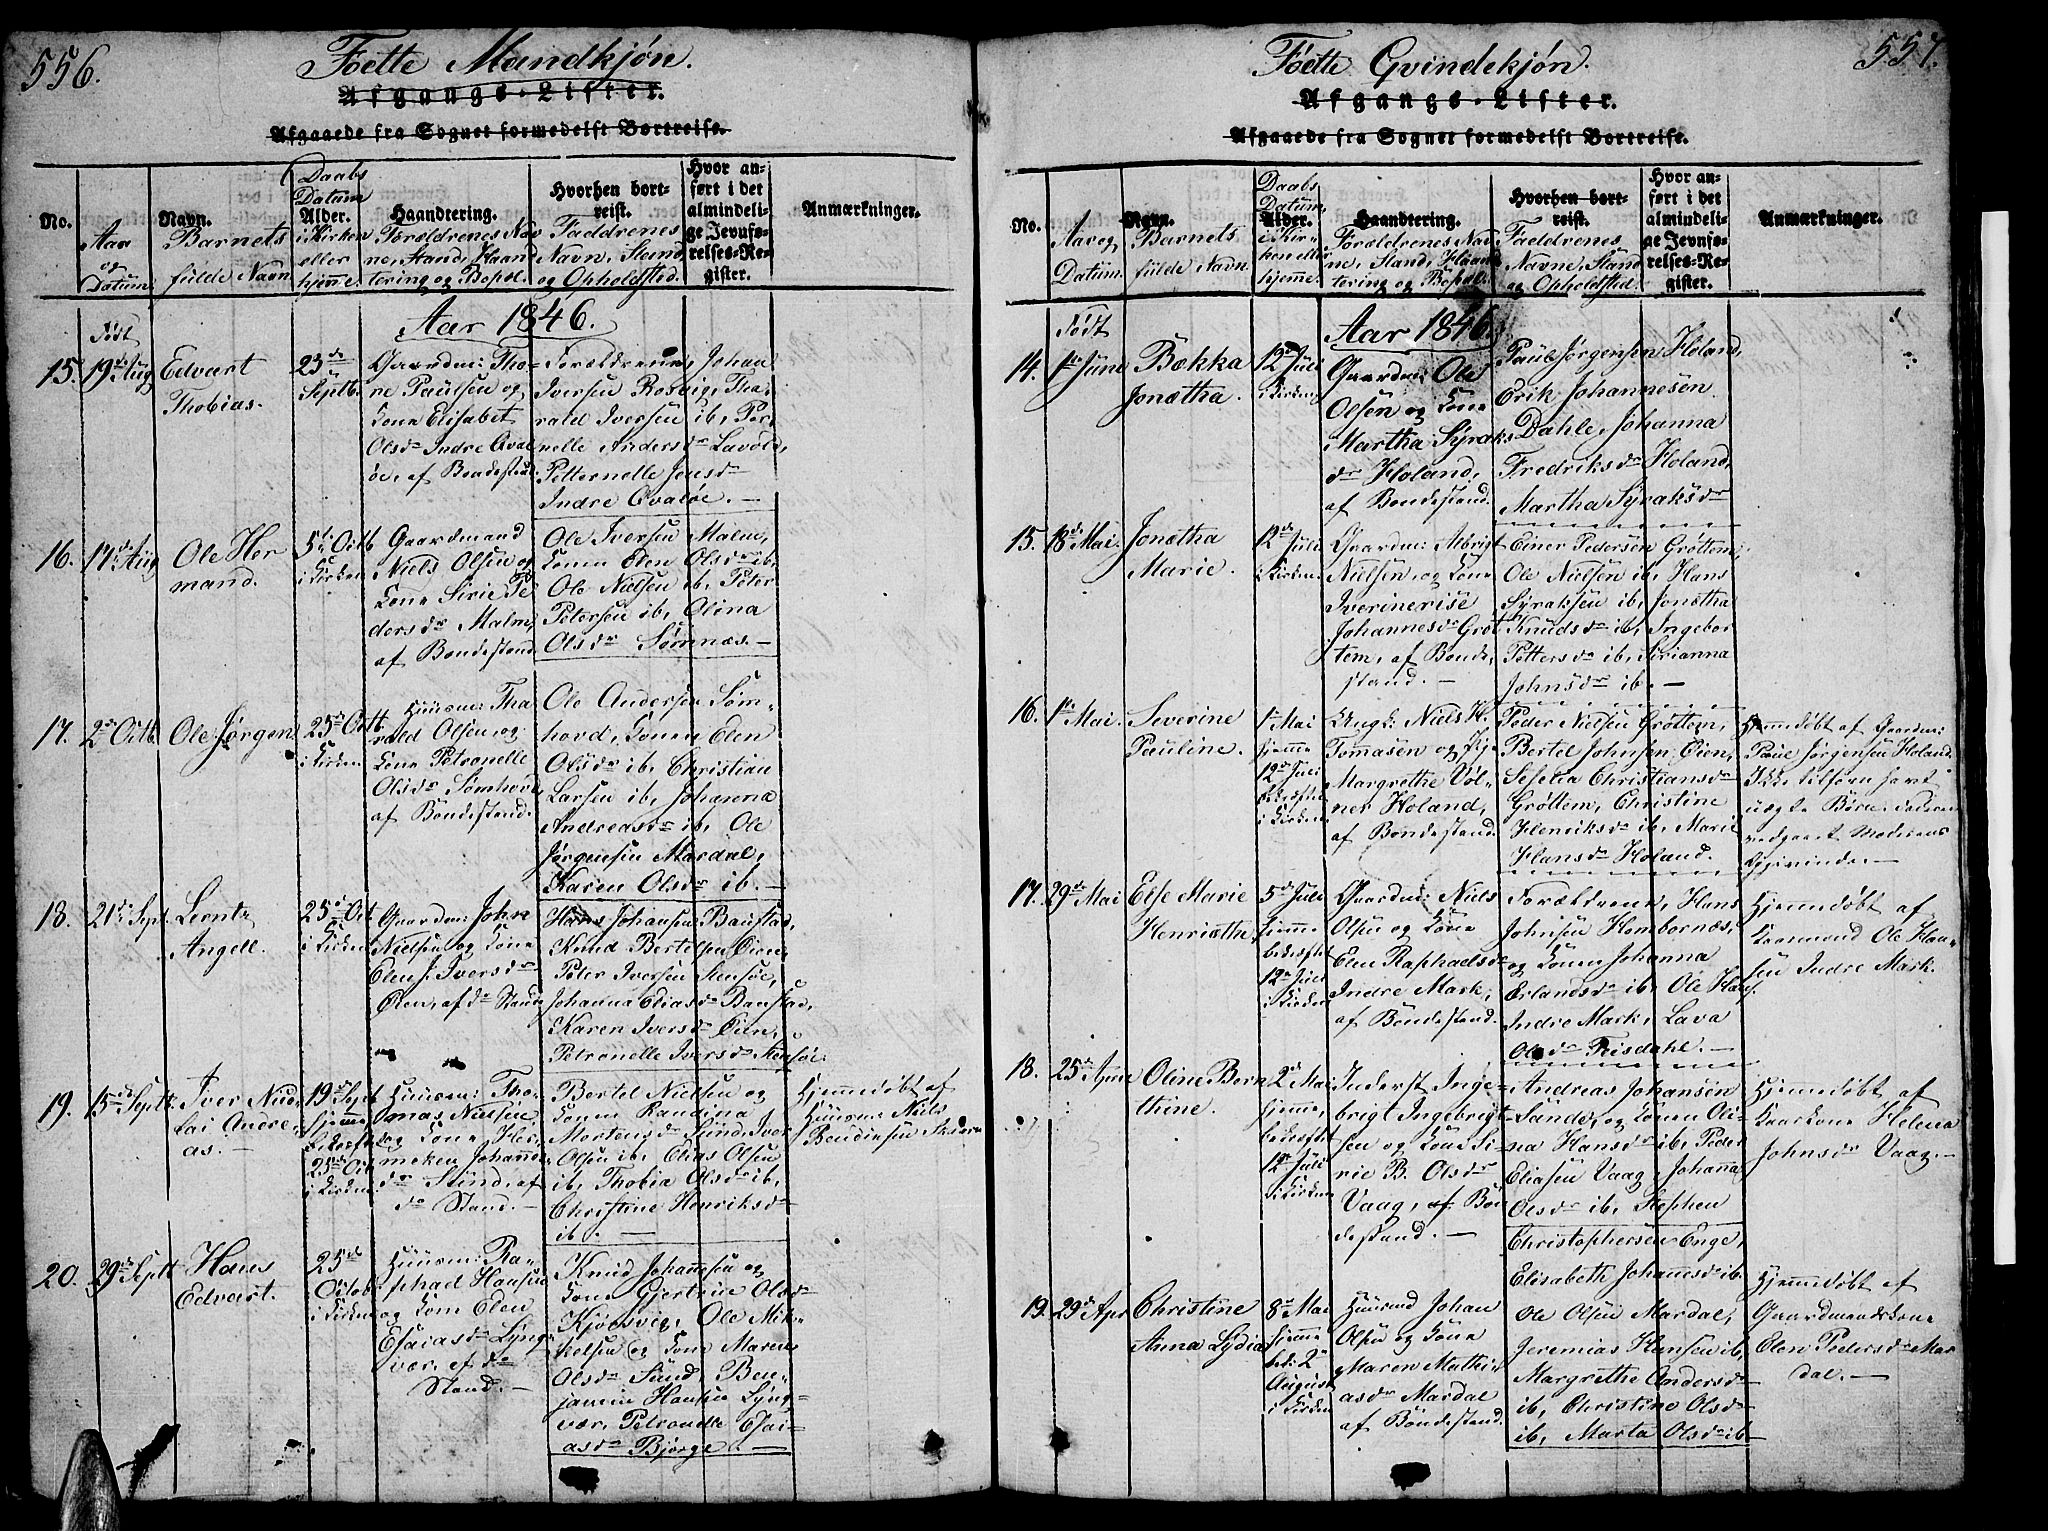 556.
Fødte Mandkjøn.
Afgangs-Lister.
Afgaaede fra Sognet formedelst Bortreise.
No.
Aar
og
Datum.
Navn.
Barnets
fulde Navn
Daabs
Datum
Alder.
i Kirken
eller
hjemme.
Haandtering.
Forældrenes Nav
ne, Stand, Haan
tering og Bopæl.
Hvorhen bort-
reist.
Faddrenes
Navn, Stand,
og Opholdsted.
Hvor an-
ført i det
almindeli-
ge Jevnfø-
relses-Re-
gister.
Anmærkninger.
Aar 1846.
Født
15.
19de Aug
Edvart
Thobias.
23de
Septb.
Gaardm: Tho-
re Paulsen og
Kone Elisabet
Olsdr Indre Qval
øe, af Bondestand
Forældrene, Johan
Iversen Rosvig, Tha-
rald Iversen ib, Per-
nelle Andersdr Lavold,
Petternelle Jensdr
Indre Qvaløe. —
16.
17de Aug
Ole Her
mand.
5te Octb
i Kirken
Gaardmand
Niels Olsen og
Kone Sirie Pe
dersdr Malm,
af Bondestand
Ole Iversen Malm,
Konen Elen Olsdr ib,
Ole Nielsen ib, Peter
Petersen ib, Olina
Olsdr Sømnæs. —
17.
2den Octb
Ole Jørgen
25de Octb
i Kirken
Huusm: Tha
rald Olsen, og
Kone Petronelle
Olsdr Sømhov,
af Bondestand.
Ole Andersen Søm-
hovd, Konen Elen
Olsdr ib, Christian
Larsen ib, Johanna
Andreasdr ib, Ole
Jørgensen Mardal,
Karen Olsdr ib. —
18.
21de Sept
Leonts
Angell.
25de Oct
i Kirken
Gaardm: John
Nielsen og Kone
Elen S. Iversdr
Øien, af dr Stand
Hans Johansen Baustad,
Knud Bertelsen Øien,
Peter Iversen Stensøe,
Johanna Eliasdr Baustad,
Karen Iversdr Øien,
Petronelle Iversdr Stensøe
19.
15de Septb
Iver Nico-
lai Andre-
as. —
19de Sept
hjemme
bekræftet
25de Oct
i Kirken
Huusm: Tho-
mas Nielsen
og Kone Her-
meken Johannes
dr Sund, af
do Stand. —
Bertel Nielsen og
Konen Randina
Mortensdr Sund, Iver
Olsen ib, Elias Olsen
ib, Thobia Olsdr ib,
Christine Henriksdr
ib. —
Hjemmedøbt af
Huusm: Niels
Bendigsen
20.
29de Septb
Hans
Edvart.
25de
Octob
i Kirken
Huusm: Ra-
phael Hansen
og Kone Elen
Esaiasdr Lyng-
vær, af do
Stand. —
Knud Johannsen og
Kone Gjertrue Olsdr
Kjølsvig, Ole Mik-
kelsen og Kone Maren
Olsdr Sund, Ben-
jamin Hansen Lyng-
vær, Petronelle Esai-
asdr Bjørge. —
557.
Fødte Qvindekjøn.
Afgangs-Lister.
Afgaaede fra Sognet formedelst Bortreise.
No.
Aar og
Datum.
Navn.
Barnets
fulde Navn
Daabs
Datum,
Alder.
i Kir-
ken eller
hjemme.
Haandtering.
Forældrenes Nav
ne, Stand, Haand
tering og Bopæl.
Hvorhen bort-
reist.
Faddrenes
Navne, Stand
og Opholdsted.
Hvor an-
ført i det
almindeli-
ge Jevnfø-
relses-Re-
gister.
Anmærkninger.
Født
Aar 1846.
14.
1ste June
Bækka
Jonætha.
12te Juli
i Kirken
Gaardm: Ole
Olsen og Kone
Martha Syraks
dr Holand,
af Bondestand.
Paul Jørgensen Holand,
Erik Johannesen
Dahle, Johanna
Fredriksdr Holand,
Martha Syraksdr
15.
18de Mai.
Jonætha
Marie.
12te Juli
i Kirken
Gaardm: Albrigt
Nielsen, og Kone
Iverinerise
Johannesdr Grøt
tem, af Bonde,
stand. —
Einer Pedersen Grøttem,
Ole Nielsen ib, Hans
Syraksen ib, Jonætha
Knudsdr ib, Ingebor
Pettersdr ib, Sirianna
Johnsdr ib. —
16.
1ste Mai.
Severine
Pauline.
1ste Mai
hjemme
12te Juli
bekræftet
i Kirken
Ungk: Niels H.
Tommasen og Pige
Margrethe Vol-
ner Holand,
af Bondestand.
Peder Nielsen Grøttem,
Bertel Johnsen Øien,
Sefelia Christiansdr
Grøttem, Christine
Henriksdr ib, Marie
Hansdr Holand.
Hjemmedøbt af Gaardm:
Paul Jørgensen Holand.
Ikke tilforn havt
uægte Børn. Faderen
vedgaaet Moderens
Opgivende. —
17.
29de Mai
Else Marie
Henriætha,
5te Juli
hjemme
bekræftet
12te Juli
i Kirken
Gaardm: Niels
Olsen og Kone
Elen Raphaelsdr
Indre Mark,
af Bondestand.
Forældrene, Hans
Johnsen Hombornæs,
og Konen Johanna
Erlandsdr ib, Ole Hans.
Indre Mark, Lava
Olsdr Teisdahl. —
Hjemmedøbt af
Kaarmand Ole Han-
sen Indre Mark.
18.
25de Apr
Oline Bern
thine.
2den Mai
hjemme,
bekræftet
12te Juli
i Kirken
Inderst Inge-
brigt Ingebrigt-
sen og Kone Si-
rie B. Olsdr
Vaag, af Bon
destand. —
Andreas Johansen
Sande, og Konen Oli-
na Hansdr ib, Peder
Eliasen Vaag, Johanna
Olsdr ib, Stephen
Christophersen Enge,
Elisabeth Johannsdr ib.
Hjemmedøbt af
Kaarkone Helena
Johnsdr Vaag. —
19.
29de Apr
Christine
Anna Lydia
8de Mai
hjemme
bek: 2den
August
i Kirken
Huusmd Johan
Olsen og Kone
Maren Mathi-
asdr Mardal
af Bondestand.
Ole Olsen Mardal,
Jeremias Hansen ib,
Margrethe Andersdr
ib, Christine Olsdr
ib, Marta Olsdr ib —
Hjemmedøbt af
Gaardmandskone
Elen Pedersdr Mar
dal. —